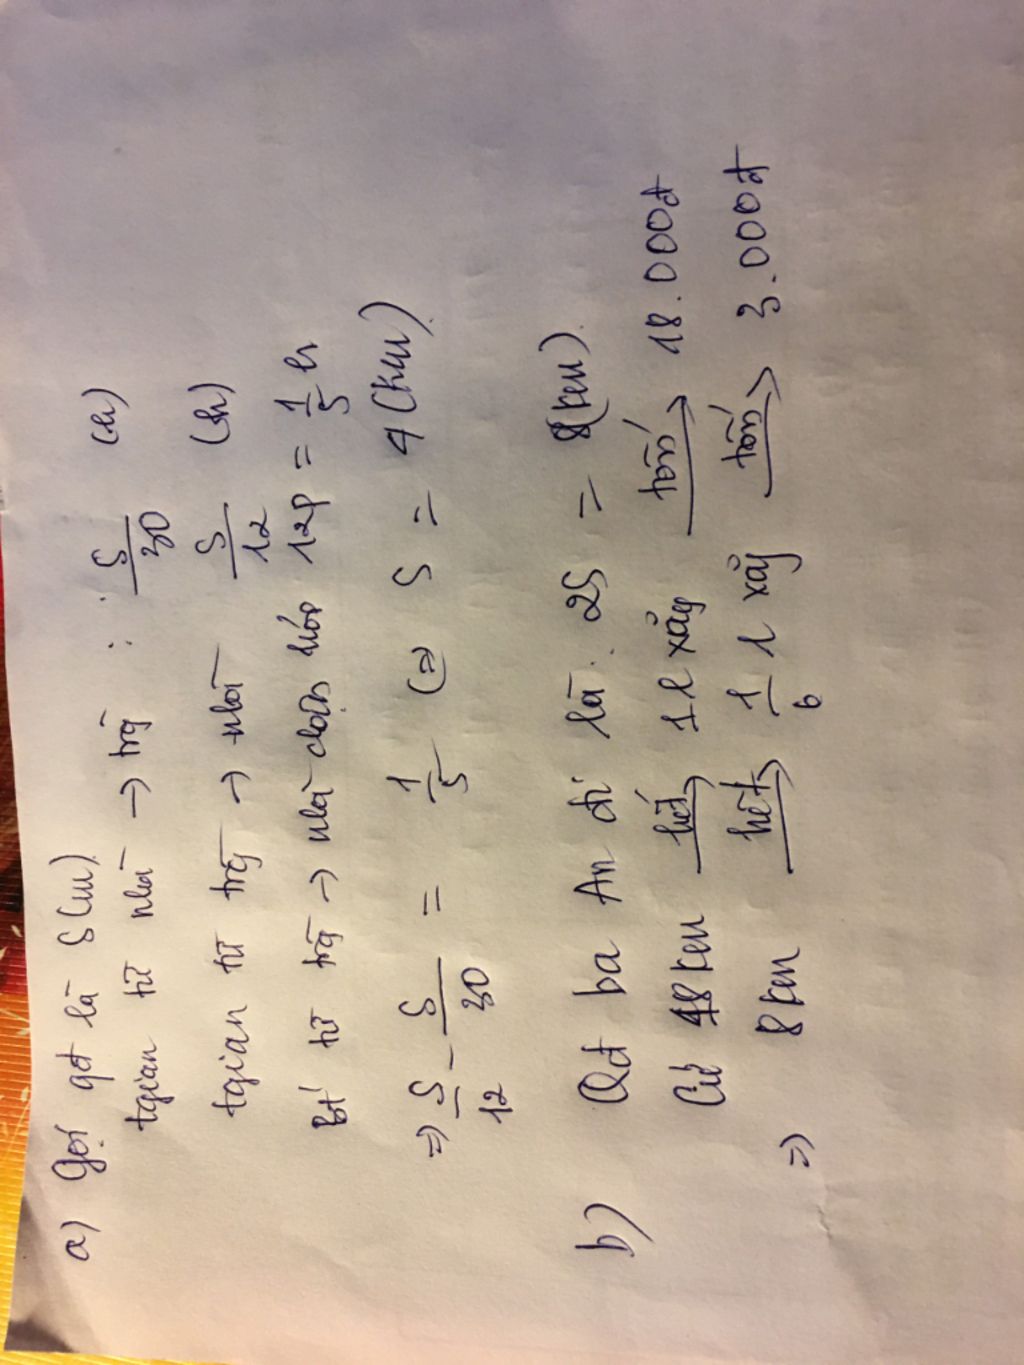 a) Gọi qđ là S (km)
tgian từ nhà → trg : S/30 (h)
tgian từ trg → nhà S/12 (h)
Bt' từ trg → nhà chậm hơn 12p = 1/5 h
=> S/12 - S/30 = 1/5 (=) S = 4 (km)
b) Qđ ba An đi là : 2S = 8 (km).
Cứ 48 km hết → 1 l xăg tốn → 18.000đ
=> 8 km hết → 1/6 l xăg tốn → 3.000đ